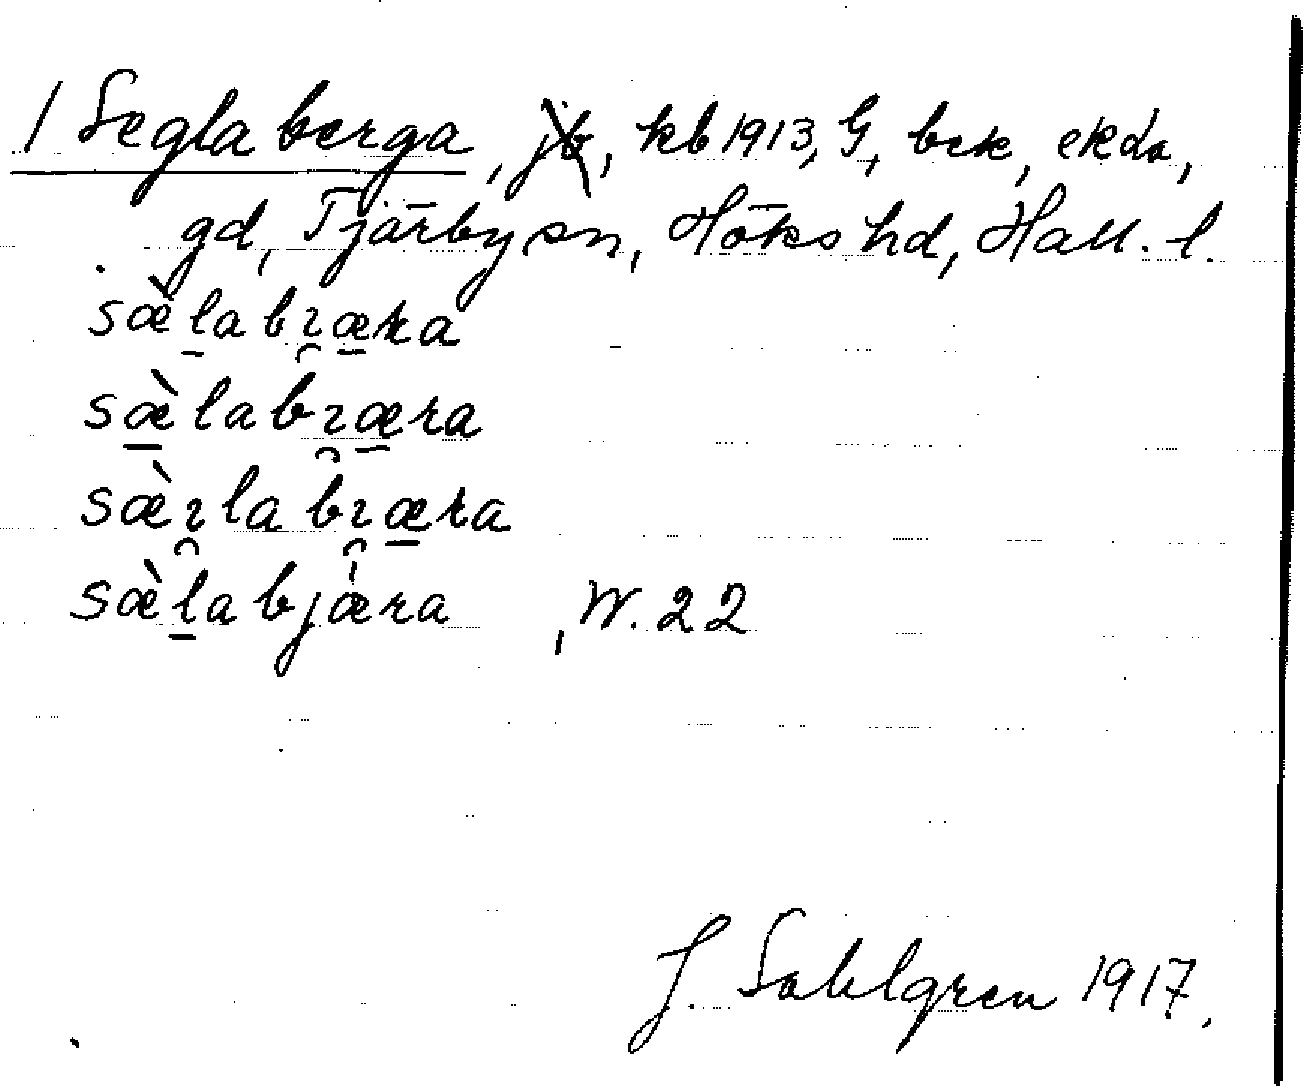 1 Seglaberga, jb, kb 1913, G, bek, ekda,
gd, Tjärby sn, Höks hd, Hall. l.
sæ̀l̠abɿ̯æ̠ra
sæ̠̀labɿ̯æ̠ra
sæ̀ɿ̯labɿ̯æ̠ra
sæ̀l̠abjæ̀ra , W. 22
J. Sahlgren 1917.